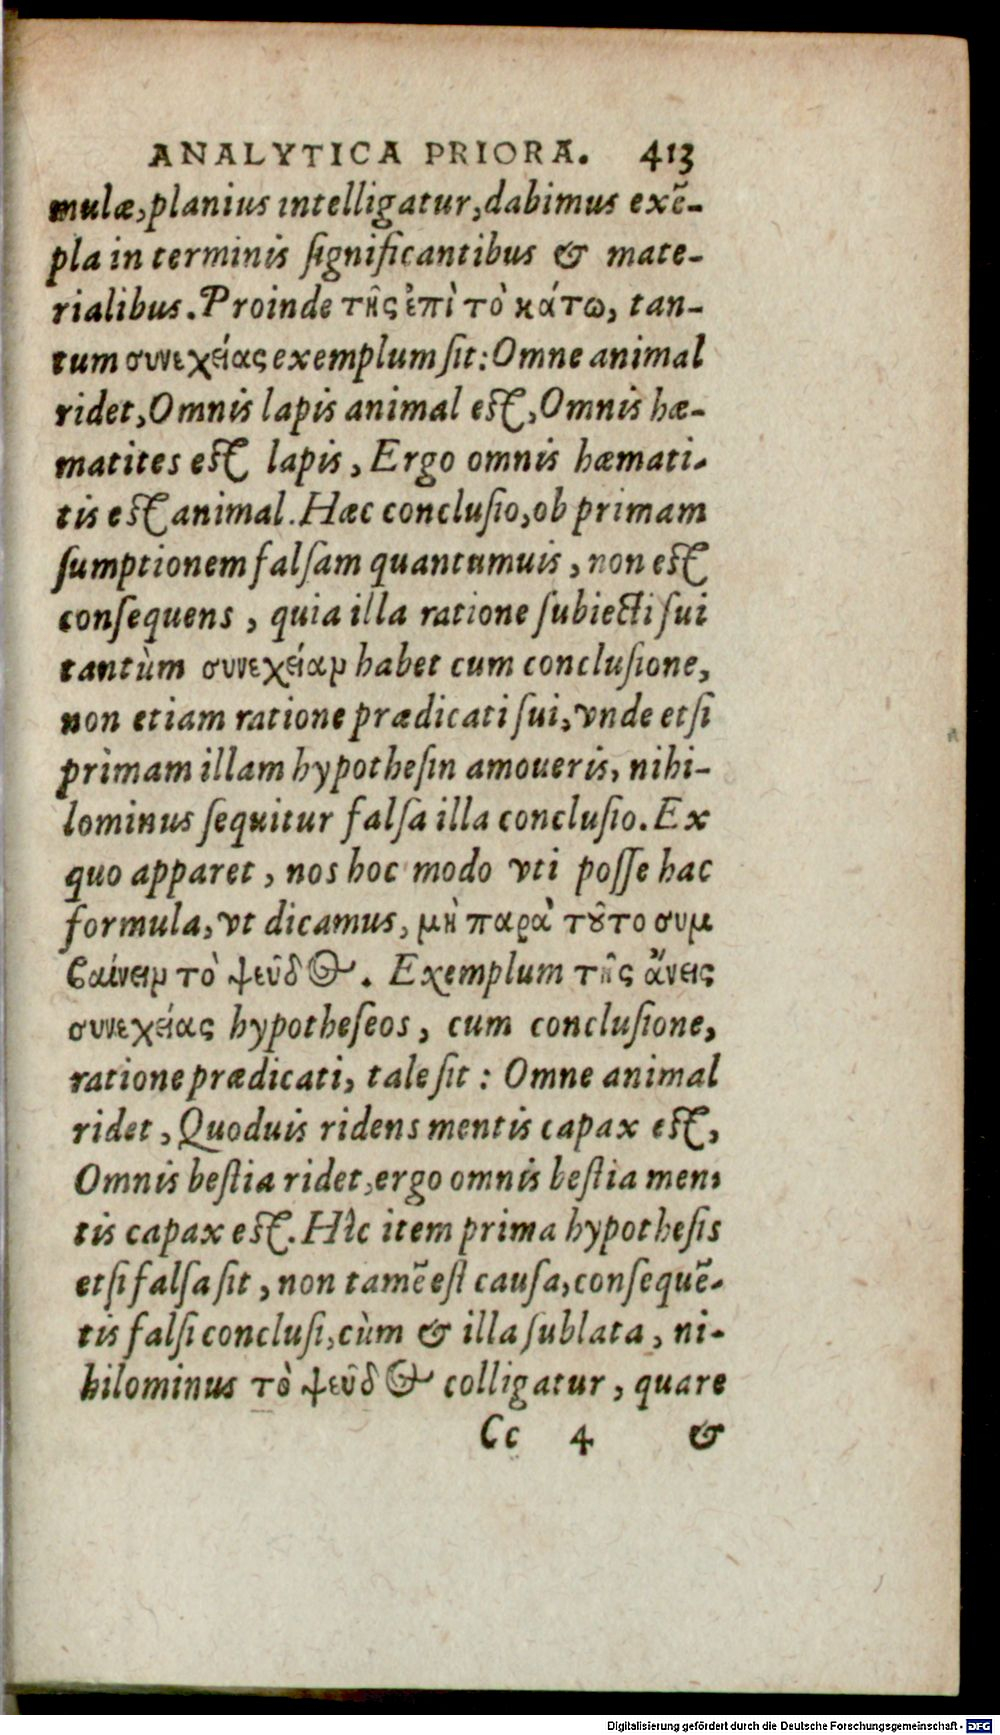 ANALYTICA PRIORA. 413
mulæ, planius intelligatur, dabimus exē-
pla in terminis ſignificantibus & mate-
rialibus. Proinde τῆς ἐπὶ τὸ κάτω, tan-
tum συνεχείας exemplum ſit: Omne animal
ridet, Omnis lapis animal eſt, Omnis hæ-
matites eſt lapis, Ergo omnis hæmati-
tis eſt animal. Hæc concluſio, ob primam
ſumptionem falſam quantumuis, non eſt
conſequens, quia illa ratione ſubiecti ſui
tantùm συνεχείαν habet cum concluſione,
non etiam ratione prædicati ſui, vnde etſi
prìmam illam hypotheſin amoueris, nihi-
lominus ſequitur falſa illa concluſio. Ex
quo apparet, nos hoc modo vti poſſe hac
formula, vt dicamus, μὴ παρὰ τȣ͂το συμ
ϐαίνειν τὸ ψεῦδος. Exemplum τῆς ἄνεις
συνεχείας hypotheſeos, cum concluſione,
ratione prædicati, tale ſit: Omne animal
ridet, Quoduis ridens mentis capax eſt,
Omnis beſtia ridet, ergo omnis beſtia men-
tis capax eſt. Hîc item prima hypotheſis
etſi falſa ſit, non tamē eſt cauſa, conſequē-
tis falſi concluſi, cùm & illa ſublata, ni-
hilominus τὸ ψεῦδος colligatur, quare
Cc 4 &
Digitalisierung gefördert durch die Deutsche Forschungsgemeinschaft - DFG